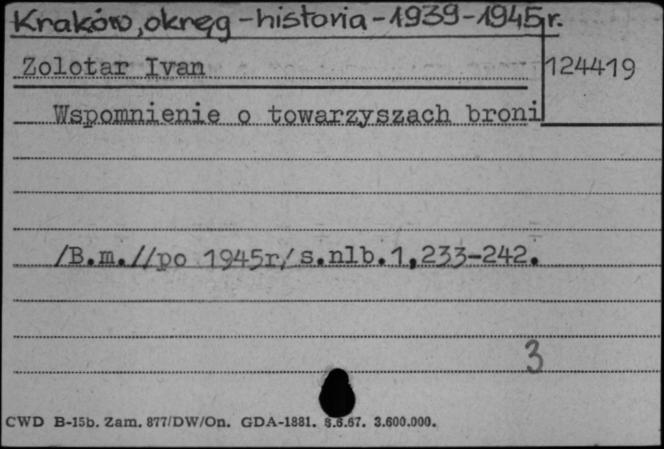 Kraków, okręg - historia - 1939-1945 r.
Zolotar Ivan
124419
Wspomnienie o towarzyszach broni
/B.m.//po 1945r/ s.nlb.1,233-242.
3
CWD B-15b. Zam. 877/DW/On. GDA-1881. 8.6.67. 3.600.000.